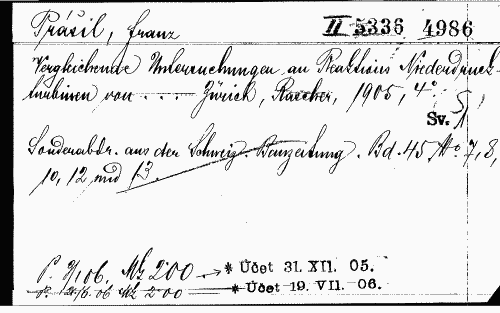 Prášil, Franz II 5336 4986
Vergleichende Untersuchungen an Reaktions Niederdruck-
turbinen von . . . . Zürich, Rascher, 1905, 4°
Sv.
Sonderabdr. aus der Schweiz. Bauzeitung. Bd. 45 No. 7, 8,
10, 12 und 13.
P. 9/1 06. Mk 200 → * Účet 31. XII. 05.
06 Mk 200 * Účet 19. VII. 06.